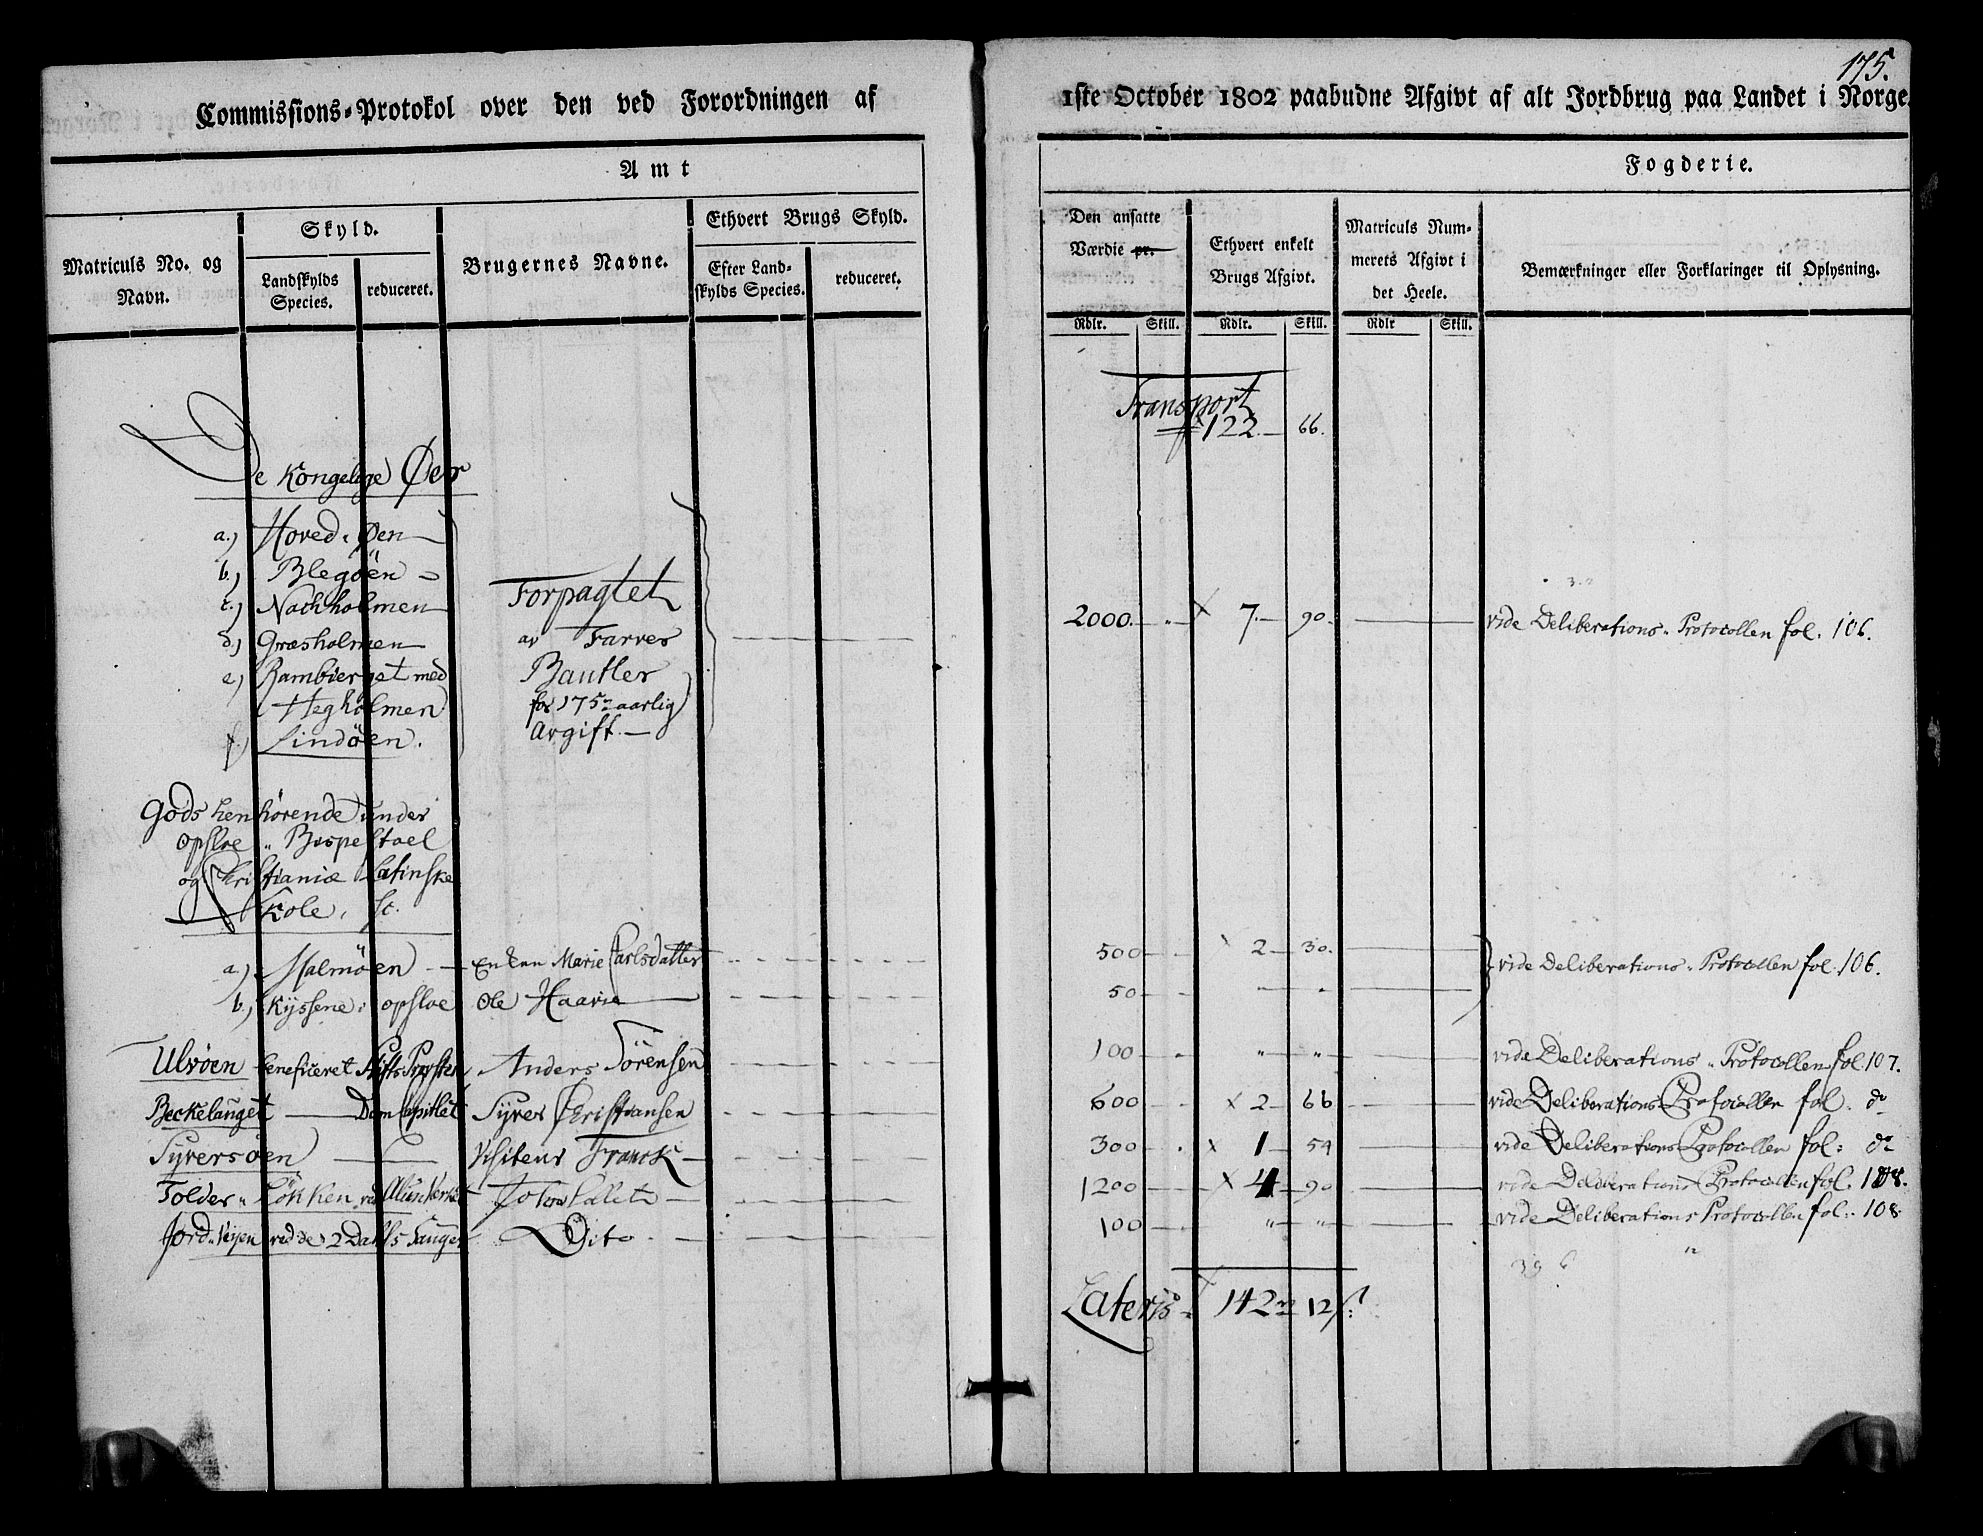 175.
Commissions-Protokol over den ved Forordningen af
1ste October 1802 paabudne Afgivt af alt Jordbrug paa Landet i Norge.
Amt
Fogderie.
Matriculs No. og Navn.
Skyld.
Landskylds Species.
reduceret.
Brugernes Navne.
Ethvert Brugs Skyld.
Efter Landskylds Species.
reduceret.
Den ansatte Værdie pr.
Ethvert enkelt Brugs Afgivt.
Matriculs Nummerets Afgivt i det Heele.
Bemærkninger eller Forklaringer til Oplysning.
Rdlr. Skill. Rdlr. Skill. Rdlr Skill.
Transport
122 66.
De Kongelige Øer
a.) Hoved-Øen
b.) Blegöen
c.) Nachholmen
d.) Græsholmen
e.) Rambierget med
Hegholmen
f.) Lindöen.
Forpagtet
av Farver
Bautler
for 175 aarlig
Avgift.
2000. 7. 90. vide Deliberations-Protocollen fol. 106.
Gods henhörende under
Opsloe Bispestoel
og Christianiæ Latinske
Skole,
a) Malmöen Enken Marie Carlsdatter 500 2 30. vide Deliberations-Protocollen fol. 106.
b.) Kyssene i opsloe Ole Haavie 50 " "
Ulvöen beneficeret Stifts Provsten Anders Sörensen 100 " " vide Deliberations-Protocollen fol. 107.
Beckelauget Dom Capitlet Syver Christiansen 600 2 66 vide Deliberations Protocollen fol. do
Syversöen Visiteur Franck 300 1 54 vide Deliberations Protocollen fol: do
Tolder-Lökken ved Alun Verket 1200 4 90 vide Deliberations Protocollen fol. 108.
Jord-Veyen ved de 2 Dahls Tanger Dito 100 " " vide Deliberations Protocollen fol: 108
Lateris 142 12